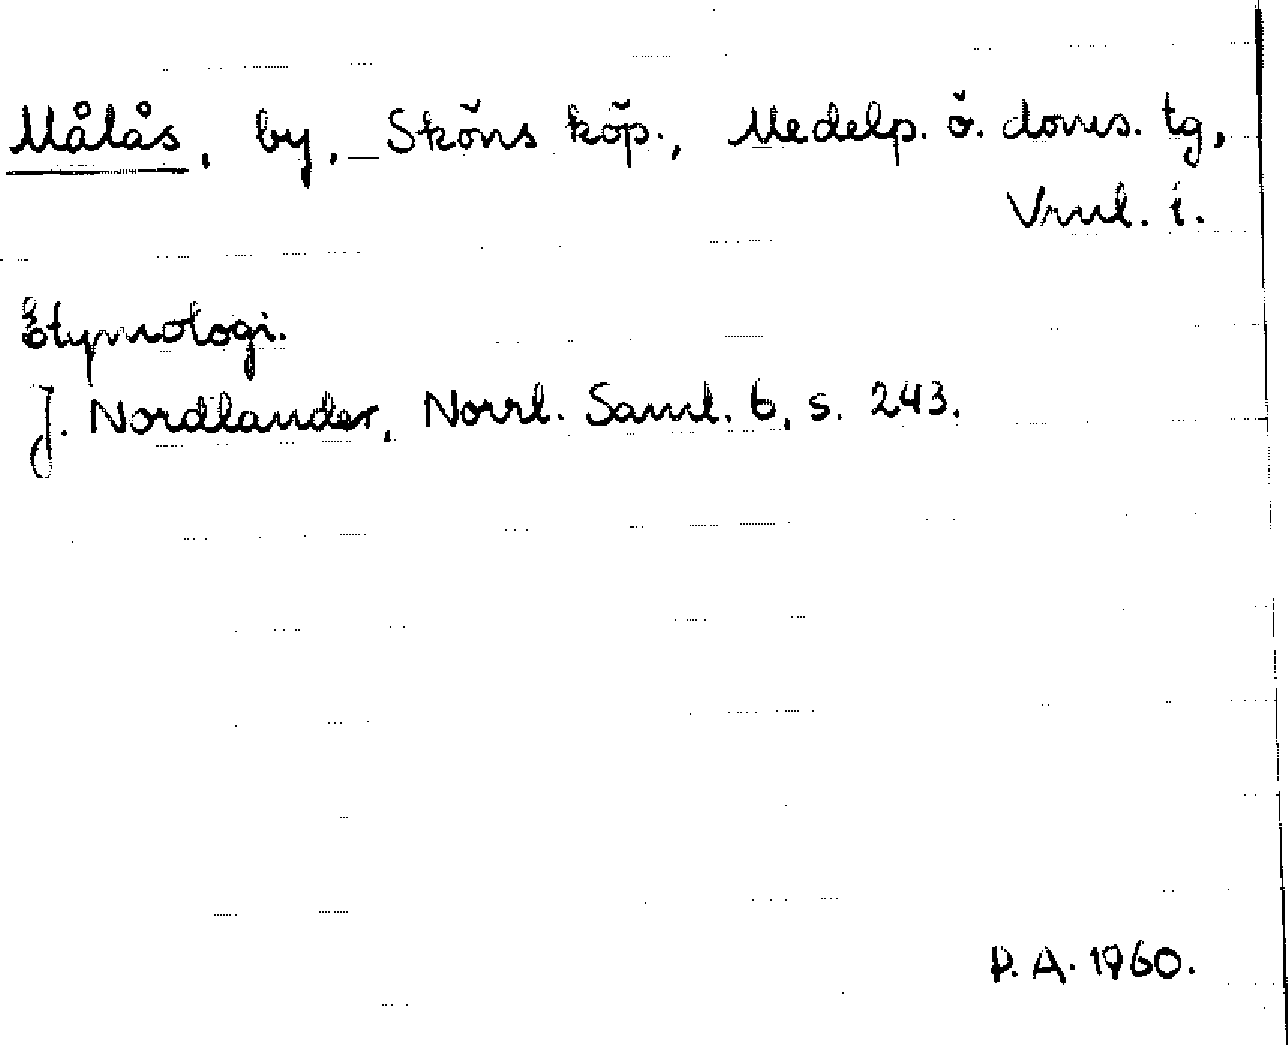 Målås, by, Sköns köp., Medelp. ö. doms. tg,
Vrnl. l.
Etymologi.
J. Nordlander, Norrl. Saml. 6, s. 243.
P.A. 1960.